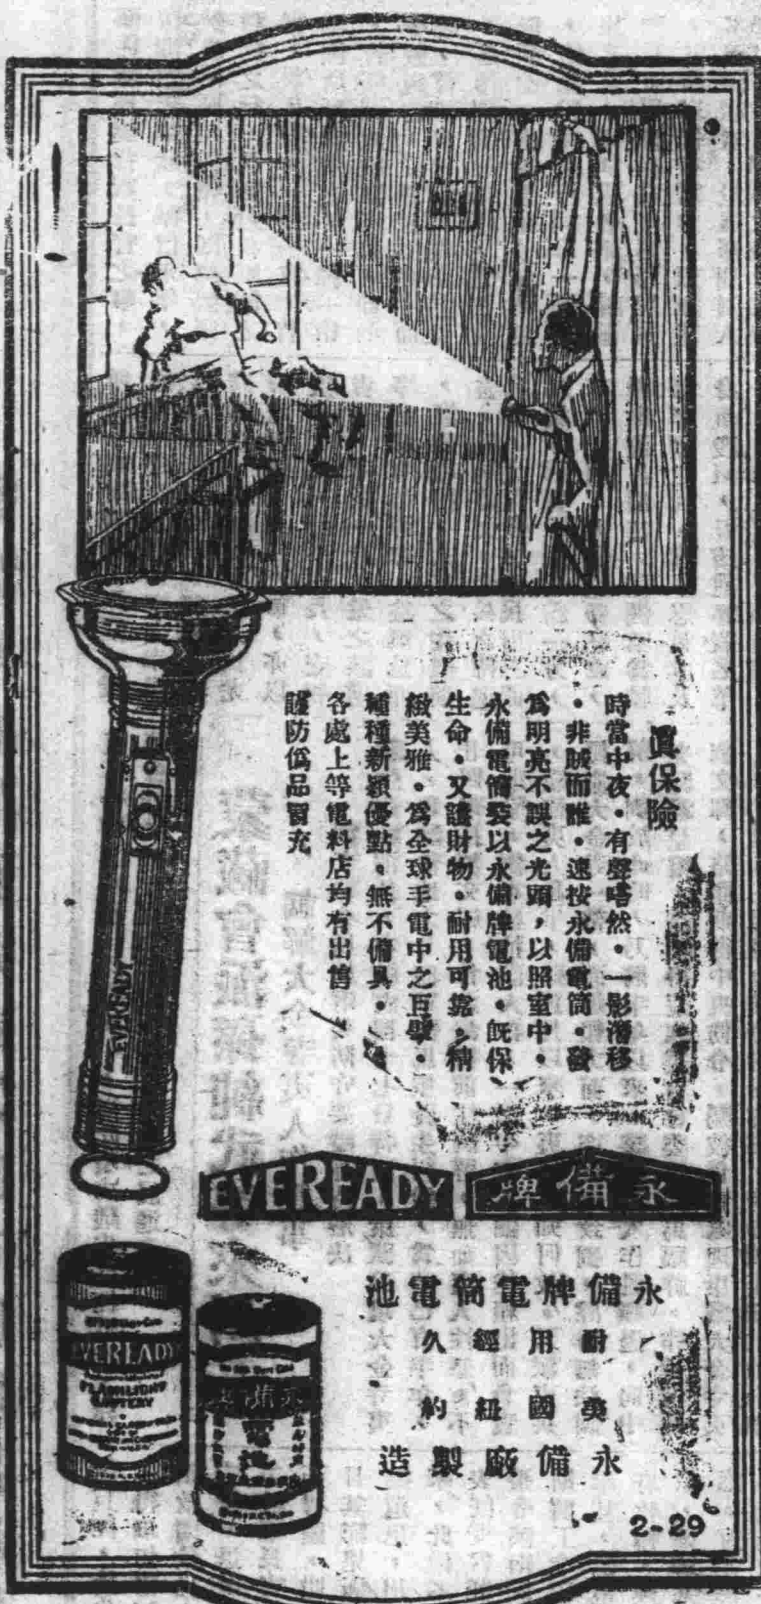 眞保險
時當中夜・有聲嗒然・一影潛移
・非賊而誰・速按永備電筒・發
爲明亮不誤之光頭，以照室中・
永備電筒裝以永備牌電池・旣保
生命・又護財物・耐用可靠・精
緻美雅・爲全球手電中之巨擘・
種種新穎優點・無不備具・
各處上等電料店均有出售
謹防僞品冒充
EVEREADY
EVEREADY
永備牌
永備牌電筒電池
耐用經久
美國紐約
永備廠製造
EVEREADY
FLASHLIGHT
BATTERY
永備牌
電池
2-29